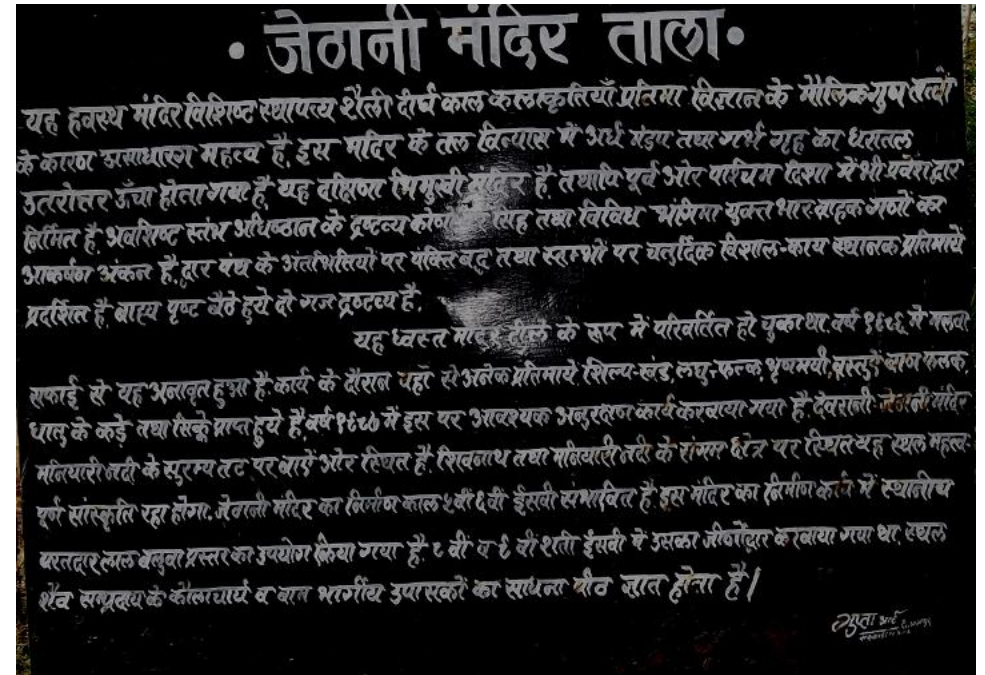 • जेठानी मंदिर ताला•
यह ध्वस्थ मंदिर विशिष्ट स्थापत्य शैली दीर्घ काल कलाकृतियाँ प्रतिमा विज्ञान के मौलिक गुण तत्वों
के कारण असाधारण महत्व है. इस मंदिर के तल विन्यास में अर्ध मंडप तथा गर्भ गृह का धरातल
उतरोत्तर ऊँचा होता गया है. यह दक्षिणा भिमुखी मंदिर है. तथापि पूर्व ओर पश्चिम दिशा में भी प्रवेश द्वार
निर्मित है. अवशिष्ट स्तंभ अधिष्ठान के द्रष्टव्य कोणों सिंह तथा विविध भंगिमा युक्त भार वाहक गणों का
आकर्षण अंकन है. द्वार पंथ के अंतभितियों पर पंक्ति बद्ध तथा स्तम्भों पर चतुर्दिक विशाल-काय स्थानक प्रतिमायें
प्रदर्शित है. बाह्य पृष्ट बैठे हुये दो गज द्रष्टव्य है.
यह ध्वस्त मंदिर टीले के रूप में परिवर्तित हो चुका था. वर्ष १९८६ में मलवा
सफाई से यह अनावृत हुआ है. कार्य के दौरान यहाँ से अनेक प्रतिमायें, शिल्प-खंड, लघु-फल्क, वस्तुऐं बाण फलक,
धातु के कड़े तथा सिक्के प्राप्त हुये है. वर्ष १९८७ में इस पर आवश्यक अनुरक्षण कार्य करवाया गया है. देवरानी जेठानी मंदिर
मनियारी नदी के सुरम्य तट पर बाऐं ओर स्थित है. शिवनाथ तथा मनियारी नदी के संगम क्षेत्र पर स्थित यह स्थल महत्व-
पूर्ण सांस्कृति रहा होगा. जेठानी मंदिर का निर्माण काल ५वीं ६वीं ईसवी संभावित है. इस मंदिर का निर्माण कार्य में स्थानीय
परतदार लाल बलुवा प्रस्तर का उपयोग किया गया है. ८ वी व ९ वी शती ईसवी में उसका जीर्णोद्दार करवाया गया था. स्थल
शैव सम्प्रदाय के कौलाचार्य व वाम भार्गीय उपासकों का साधना पीठ ज्ञात होता है|
गुप्ता आर्ट